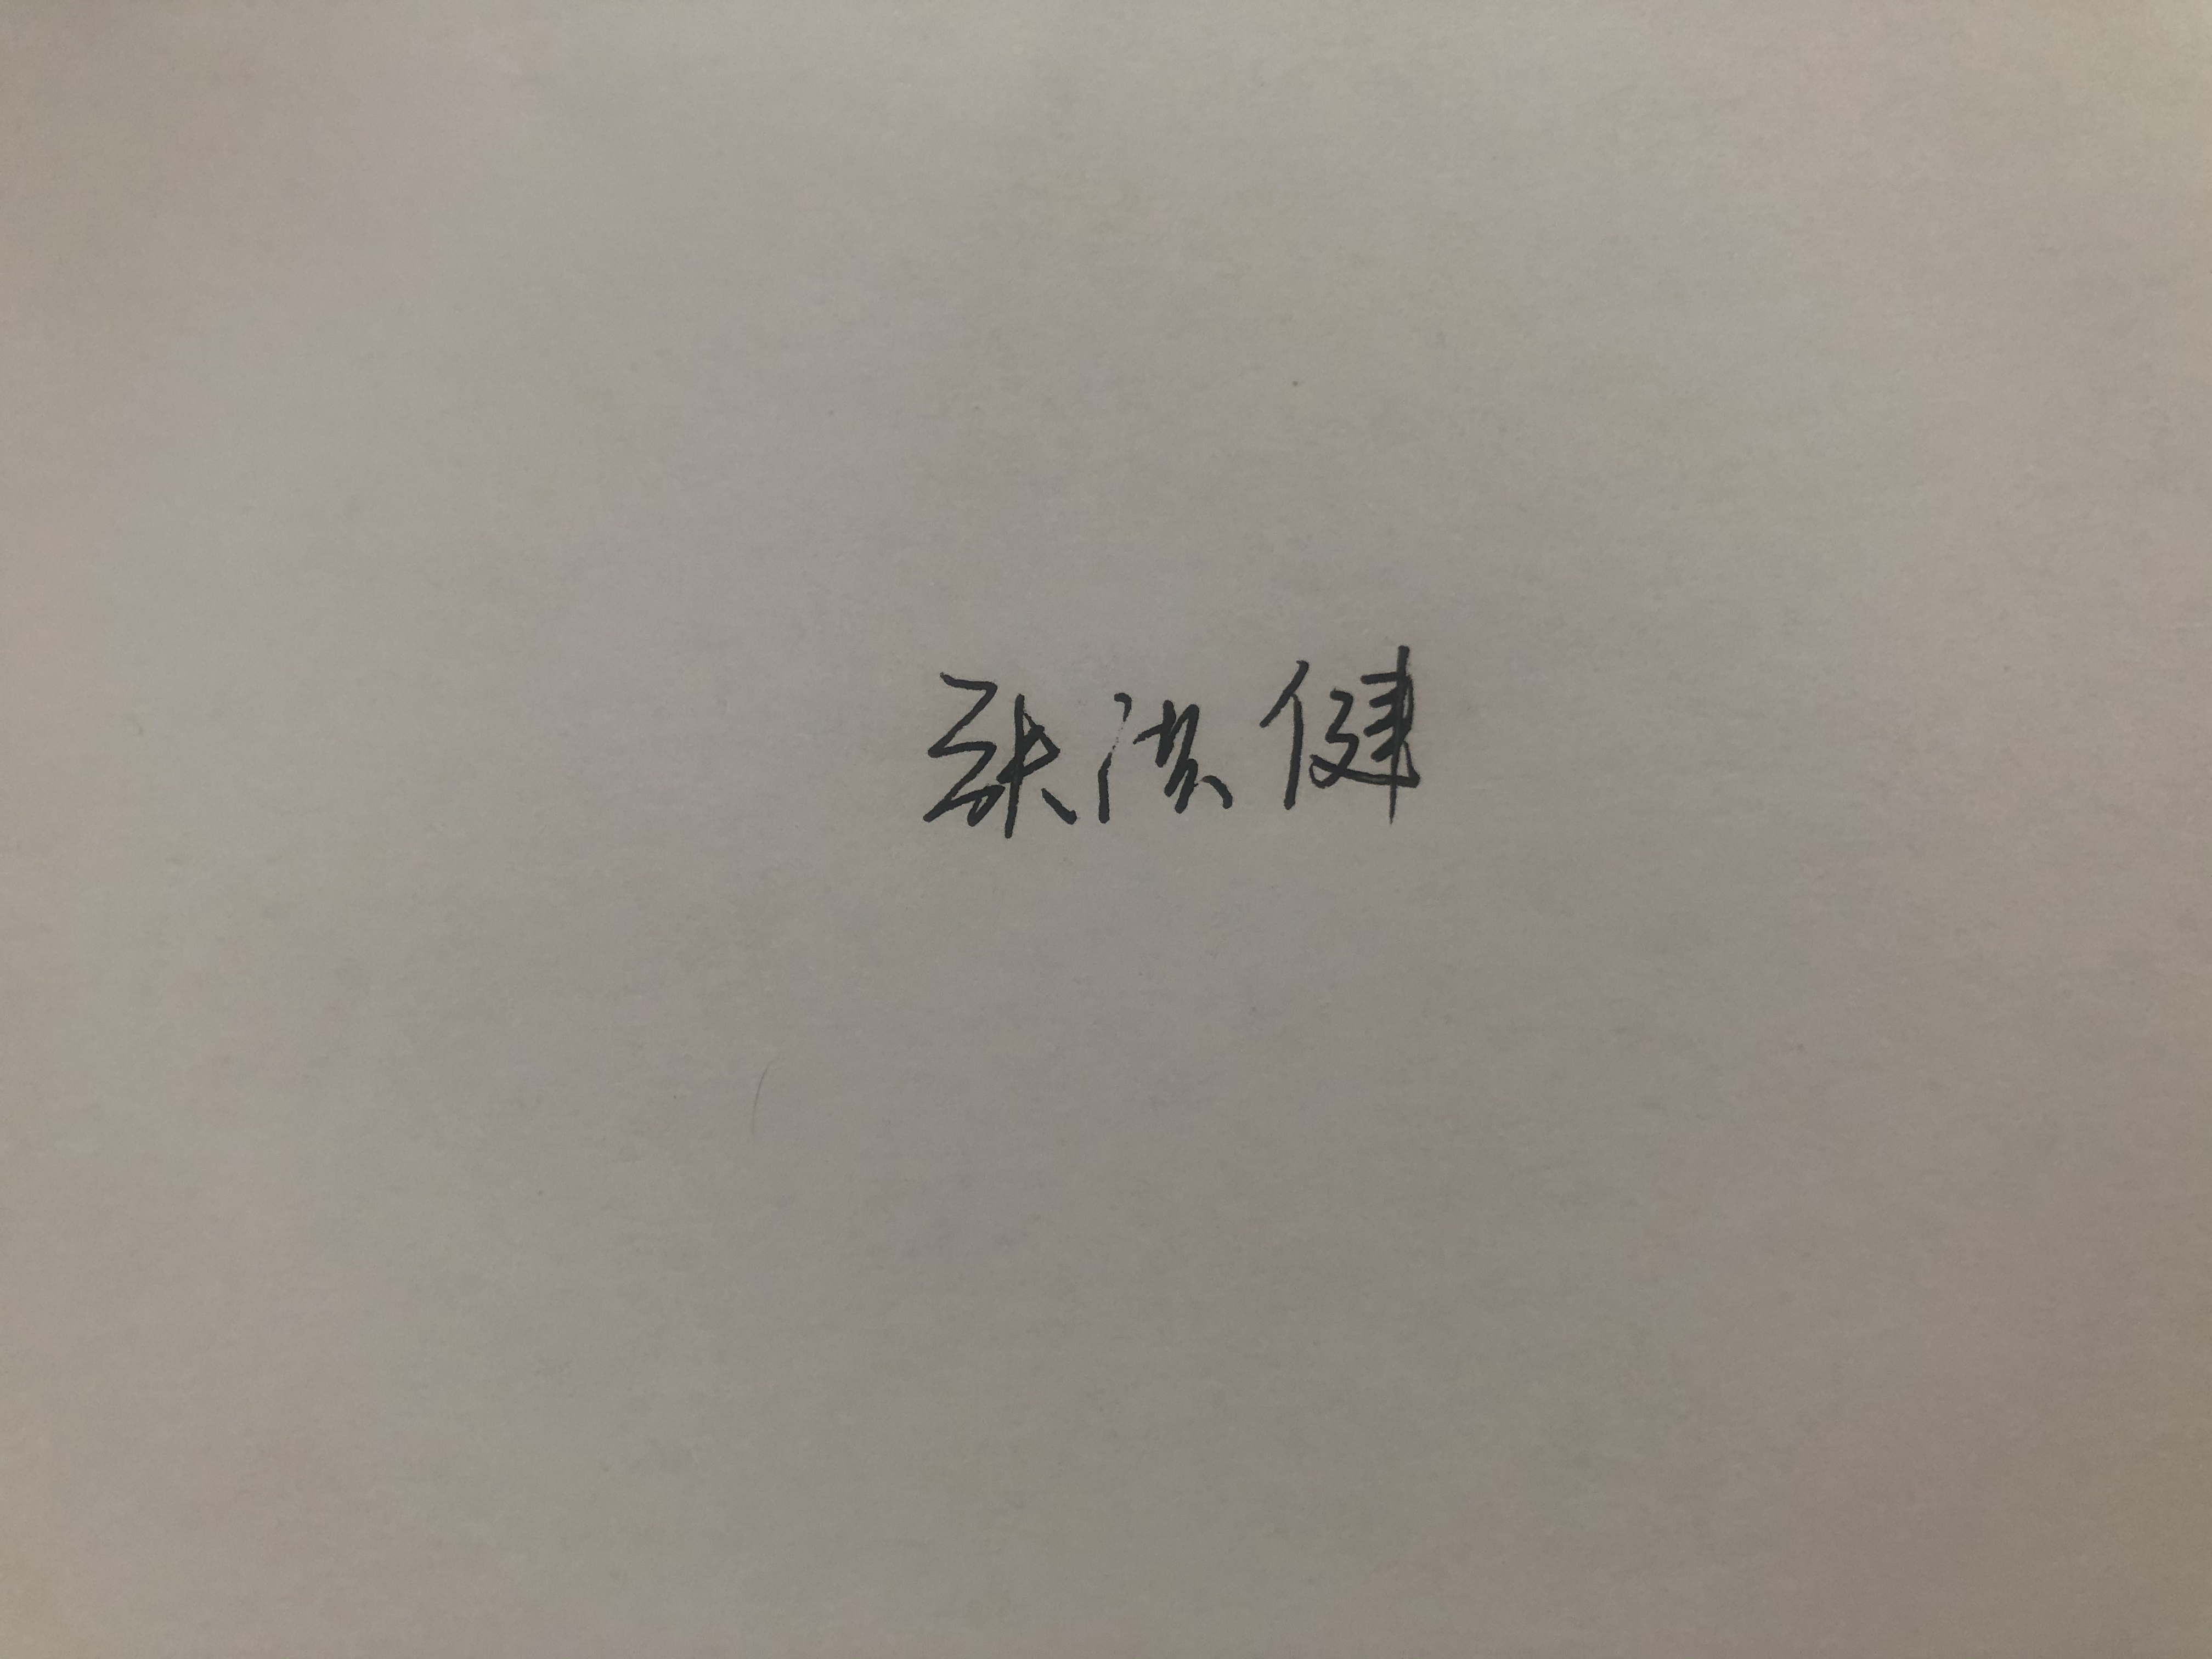 张洪健